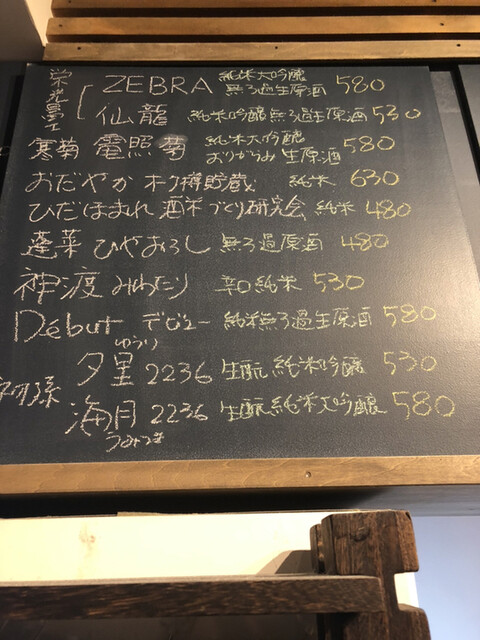 栄光冨士
ZEBRA 純米大吟醸 無ろ過生原酒 580
仙龍 純米吟醸無ろ過生原酒 530
寒菊 電照菊 純米大吟醸 おりがらみ 生原酒 580
おだやか オーク樽貯蔵 純米 630
ひだほまれ 酒米づくり研究会 純米 480
蓬莱 ひやおろし 無ろ過原酒 480
神渡 みわたり 辛口純米 530
Debut デビュー 純米無ろ過生原酒 580
初孫
ゆうり
夕星 2236 生酛純米吟醸 530
海月 2236 生酛純米大吟醸 580
うみつき